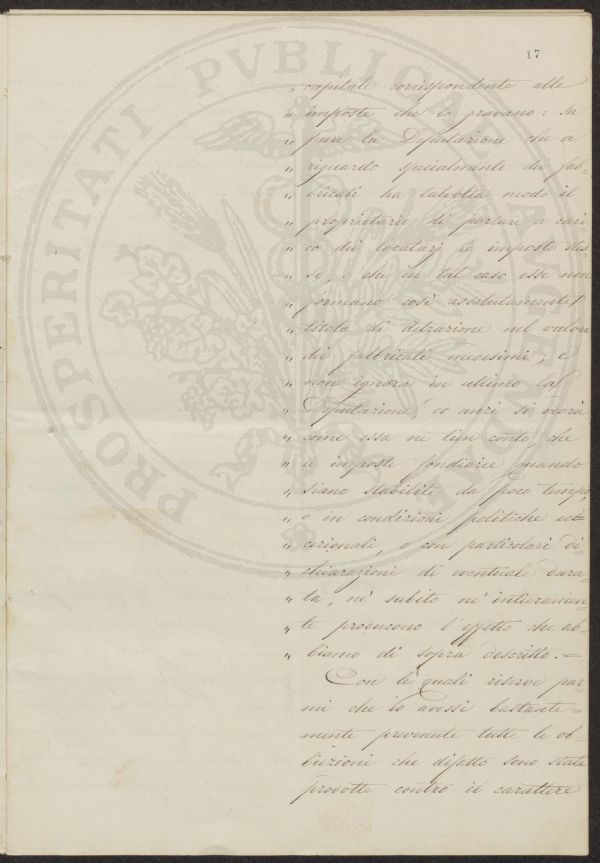 17
„ capitale corrispondente alle
„ imposte che lo gravano: sa
„ pure la Deputazione che a
„ riguardo specialmente dei fab=
„ bricati ha talvolta modo il
„ proprietario di portare a cari=
„ co dei locatarj le imposte stes=
„ se, e che in tal caso esse non
„ formano così assolutamente
„ titolo di detrazione nel valore
„ dei fabbricati medesimi; e
„ non ignora in ultimo la
„ Deputazione, ed anzi si vedrà
„ come essa ne tien conto, che
„ le imposte fondiarie quando
„ siano stabilite da poco tempo,
„ o in condizioni politiche ec=
„ cezionali, o con particolari di=
„ chiarazioni di eventuale dura=
„ ta, nè subito nè intieramen=
„ te producono l'effetto che ab=
„ biamo di sopra descritto.=
Con le quali riserve par=
mi che io avessi bastante=
mente prevenute tutte le ob=
biezioni che difatto sono state
prodotte contro il carattere
PROSPERITATI PVBLICAE